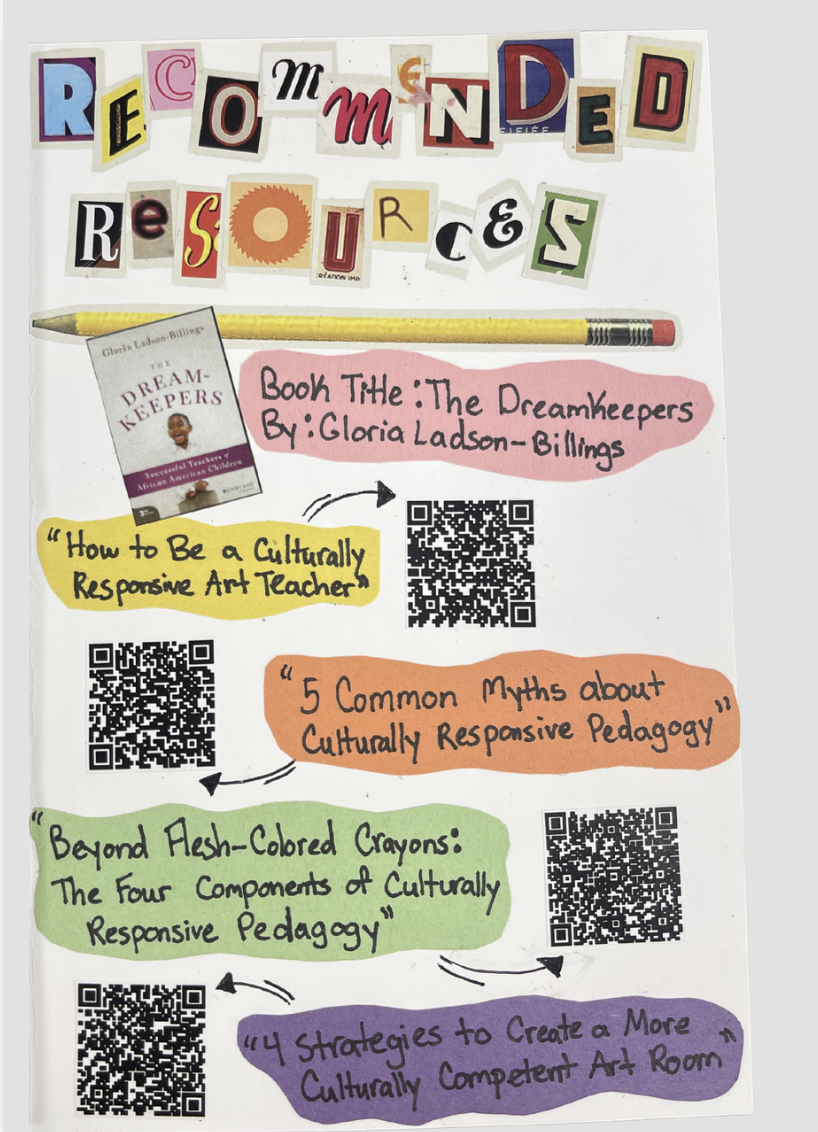 RECOMMENDED
ReSOURCES
Gloria Ladson-Billings
THE
DREAM-
KEEPERS
Successful Teachers of
African American Children
Book Title: The DreamKeepers
By: Gloria Ladson-Billings
"How to Be a Culturally
Responsive Art Teacher"
"5 Common Myths about
Culturally Responsive Pedagogy"
"Beyond Flesh-Colored Crayons:
The Four Components of Culturally
Responsive Pedagogy"
"4 Strategies to Create a More
Culturally Competent Art Room"